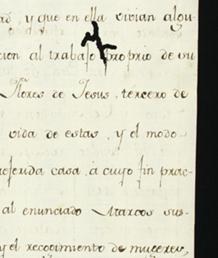 ad, y que en ella vivian algu-
cion al trabajo proprio de su
Flores de Jesus, tercero de
vida de estas, y el modo
referida casa, á cuyo fin prac-
al enunciado Marcos sus-
y el recogimiento de mugeres,